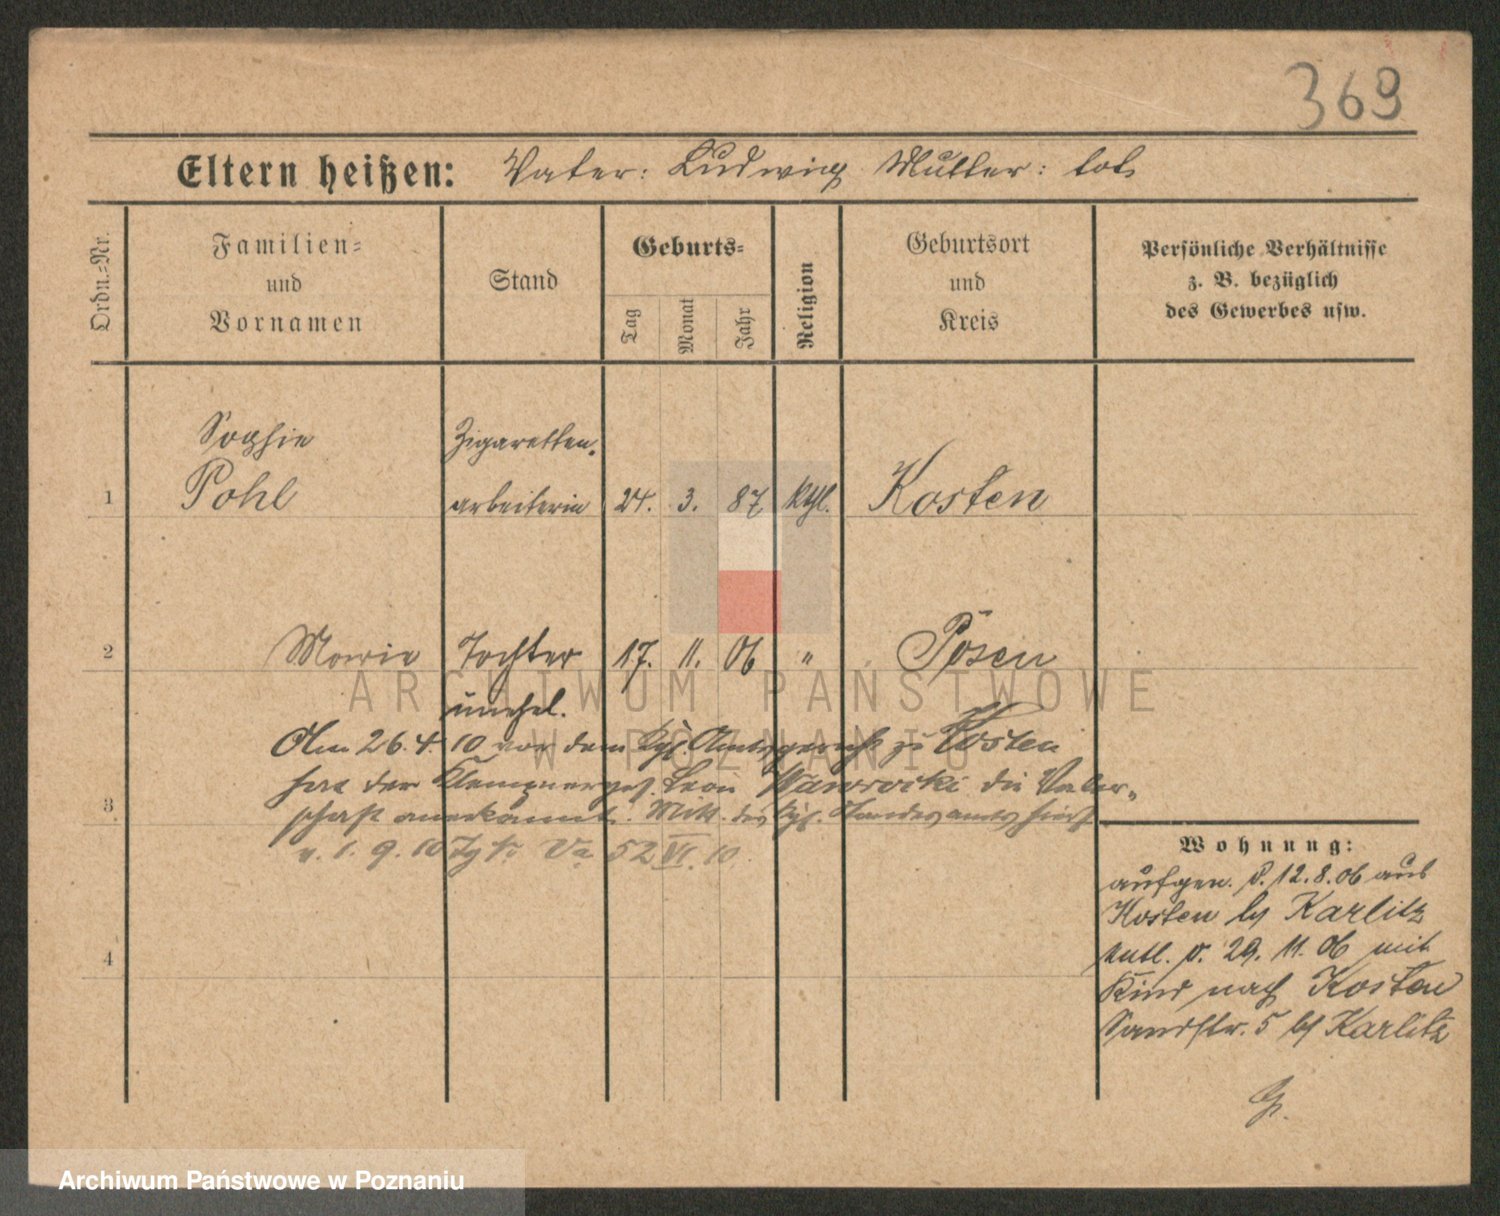 369
Eltern heißen: Vater: Ludwig Mutter: tot.
Ordn.=Nr.
Familien=
und
Vornamen
Stand
Geburts=
Tag
Monat
Jahr
Religion
Geburtsort
und
Kreis
Persönliche Verhältnisse
z. B. bezüglich
des Gewerbes usw.
Sophie Zigaretten-
1 Pohl arbeiterin 24. 3. 87 kthl. Kosten
2 Marie Tochter 17. 11. 06 " Posen
unehel.
Am 26.4.10 vor dem Kgl. Amtsgericht zu Kosten
hat der Klempnerges. Leon Nawrocki die Vater-
3 schaft anerkannt. Mitt. des Kgl. Standesamts hier
v. 1. 9. 10 52 VI 10
4
Wohnung:
aufgen. d. 12.8.06 aus
Kosten bei Karlitz
entl. d. 29. 11. 06 mit
Kind nach Kosten
Sandstr. 5 bei Karlitz
ARCHIWUM PAŃSTWOWE
W POZNANIU
Archiwum Państwowe w Poznaniu